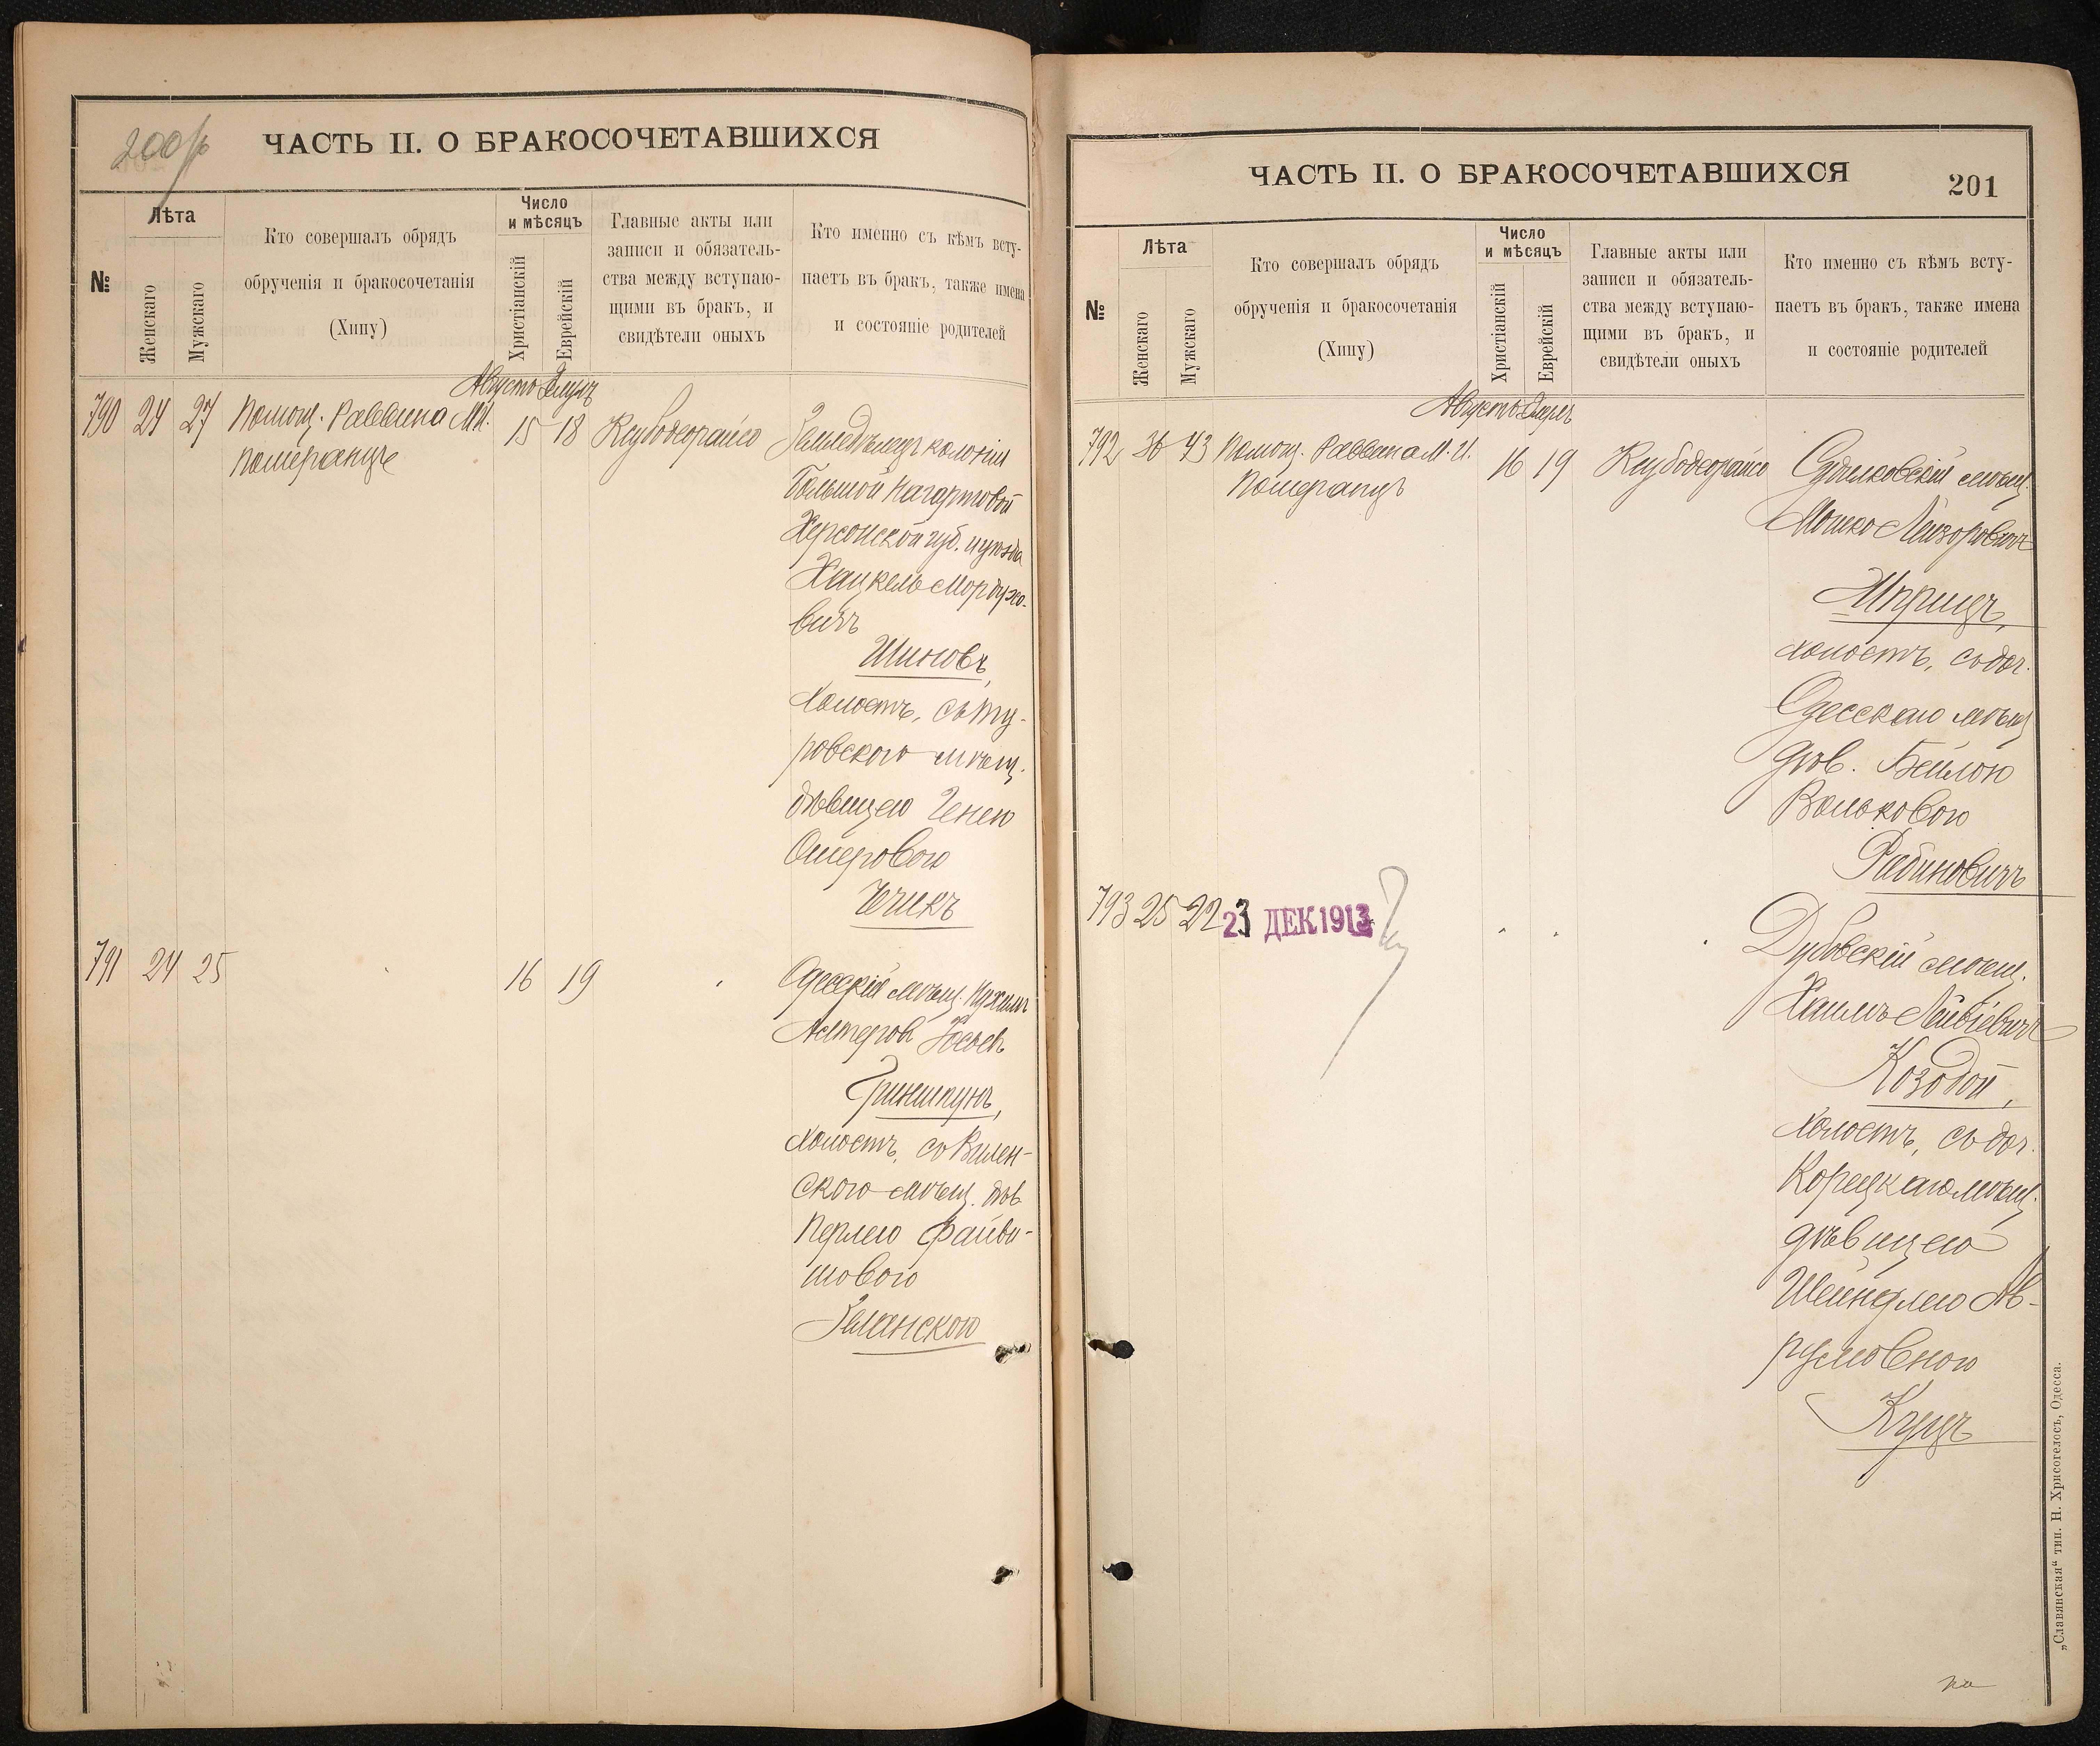 200 об
ЧАСТЬ II. О БРАКОСОЧЕТАВШИХСЯ
№
Лѣта
Женскаго
Мужскаго
Кто совершалъ обрядъ
обрученія и бракосочетанія
(Хипу)
Число
и мѣсяцъ
Христіанскій
Еврейскій
Главные акты или
записи и обязатель-
ства между вступаю-
щими въ бракъ, и
свидѣтели оныхъ
Кто именно съ кѣмъ всту-
паетъ въ бракъ, также имена
и состояніе родителей
Августъ Элулъ
790 24 27 Помощ. Раввина М.И.
Померанцъ
15 18
Земледѣлецъ колоніи
Большой Нагартовой
Херсонской губ. и уѣзда
Хацкель Мордухо-
вичъ
Шиновъ,
холостъ, съ Ту-
ровского мѣщ.
дѣвицею Генею
Ошеровою
Чечикъ
791 24 25
16 19
Одесскій мѣщ. Нухимъ
Алтеровъ Іосьевъ
Гриншпунъ,
холостъ, съ Вилен-
ского мѣщ. дѣв
Перлею Файви-
шовою
Зеланскою
ЧАСТЬ II. О БРАКОСОЧЕТАВШИХСЯ
201
№
Лѣта
Женскаго
Мужскаго
Кто совершалъ обрядъ
обрученія и бракосочетанія
(Хипу)
Число
и мѣсяцъ
Христіанскій
Еврейскій
Главные акты или
записи и обязатель-
ства между вступаю-
щими въ бракъ, и
свидѣтели оныхъ
Кто именно съ кѣмъ всту-
паетъ въ бракъ, также имена
и состояніе родителей
Августъ Элулъ
792 36 43 Помощ. Раввина М.И.
Померанцъ
16 19
Судилковскій мѣщ.
Мошко Лейзоровичъ
Шприцъ,
холостъ, съ доч.
Одесскаго мѣщ
дѣв. Бейлою
Вольковою
Рабиновичъ
793 25 22
23 ДЕК 1913
Дубовскій мѣщ.
Хаимъ Лейбіевичъ
Козодой,
холостъ, съ доч.
Корецкаго мѣщ.
дѣвицею
Шейндлею Ав-
румовною
Куцъ
„Славянская“ тип. Н. Хрисогелосъ, Одесса.